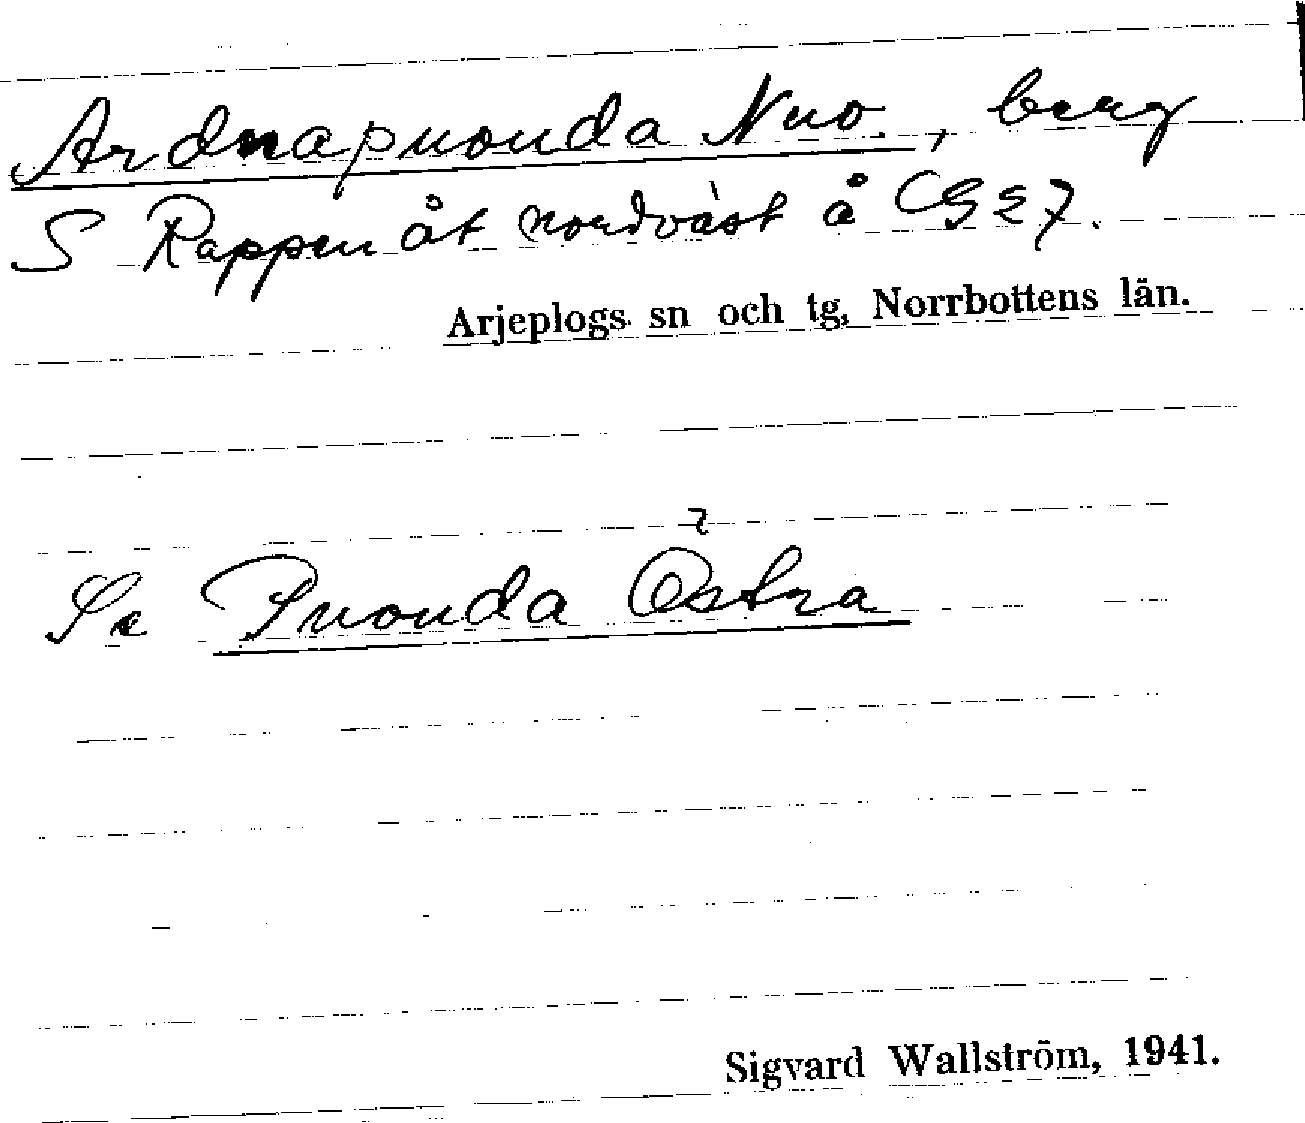 Ardnapuouda Nuo., berg
S Rappen åt nordväst å CG27.
Arjeplogs sn och tg, Norrbottens län.
Se Puouda Östra
Sigvard Wallström, 1941.